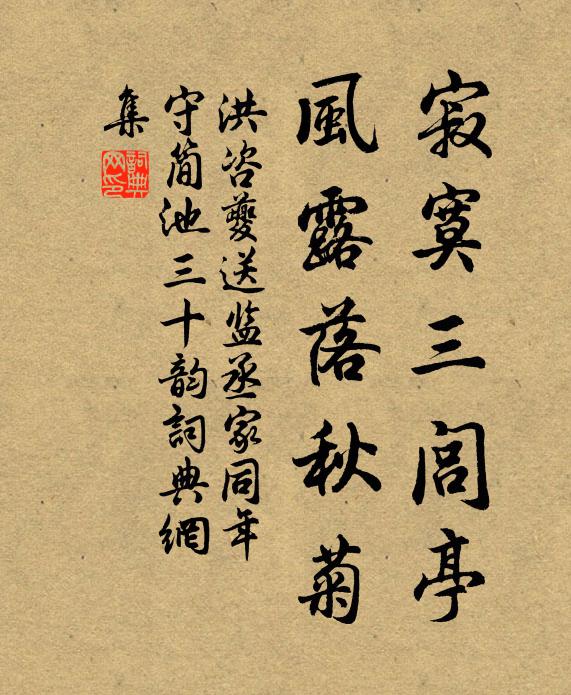 寂寞三閭亭
風露落秋菊
洪咨夔送監丞家同年
守简池三十韵詞典網
集
詞典网印